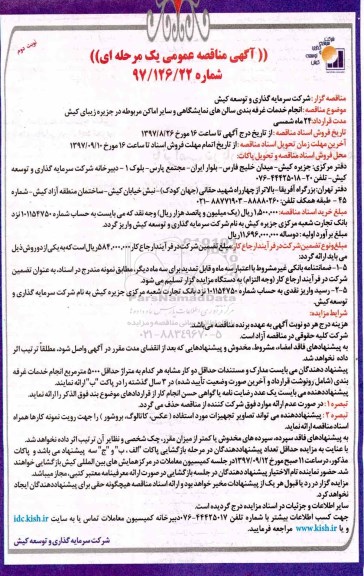 نوبت دوم
(( آگهی مناقصه عمومی یک مرحله ای))
شماره ۹۷/۱۲۶/۲۲
مناقصه گزار: شرکت سرمایه گذاری و توسعه کیش
موضوع مناقصه: انجام خدمات غرفه بندی سالن های نمایشگاهی و سایر اماکن مربوطه در جزیره زیبای کیش
مدت قرارداد: ۲۴ ماه شمسی
تاریخ فروش اسناد مناقصه: از تاریخ درج آگهی تا ساعت ۱۶ مورخ ۱۳۹۷/۸/۲۶
آخرین مهلت زمان تحویل اسناد مناقصه: از تاریخ اتمام مهلت فروش اسناد تا ساعت ۱۶ مورخ ۱۳۹۷/۰۹/۱۰
محل فروش اسناد مناقصه و تحویل پاکات:
دفتر مرکزی: جزیره کیش- میدان خلیج فارس- بلوار ایران- مجتمع پارس- بلوک ۱ - دبیرخانه شرکت سرمایه گذاری و توسعه
کیش- تلفن ۲۰-۰۷۶-۴۴۴۲۵۰۱۸
دفتر تهران: بزرگراه آفریقا- بالاتر از چهارراه شهید حقانی (جهان کودک)- نبش خیابان کیش- ساختمان منطقه آزاد کیش- شماره
۴۵ - طبقه همکف تلفن: ۸۸۸۸۰۲۶۰ - ۸۸۷۷۱۹۰۳-۰۲۱
مبلغ خرید اسناد مناقصه: ۱.۵۰۰.۰۰۰ ریال (یک میلیون و پانصد هزار ریال) وجه نقد که می بایست به حساب شماره ۱۰۱۱۵۴۷۵۰ نزد
بانک تجارت شعبه مرکزی جزیره کیش به نام شرکت سرمایه گذاری و توسعه کیش واریز گردد.
مبلغ برآورد اولیه: دوساله ۱۱.۶۹۶.۰۰۰.۰۰۰ ریال
مبلغ و نوع تضمین شرکت در فرآیند ارجاع کار: مبلغ تضمین شرکت در فرآیند ارجاع کار ۵۸۴.۰۰۰.۰۰۰ ریال است که به یکی از دو روش ذیل
می باید ارائه گردد:
۱-۵- ضمانتنامه بانکی غیرمشروط با اعتبار سه ماه و قابل تمدید برای سه ماه دیگر، مطابق نمونه مندرج در اسناد، به عنوان تضمین
شرکت در فرآیند ارجاع کار (وجه التزام) به دستگاه مزایده گزار تسلیم می شود.
۲-۵- رسید واریز نقدی به حساب شماره ۱۰۱۱۵۴۷۵۰ نزد بانک تجارت شعبه مرکزی جزیره کیش به نام شرکت سرمایه گذاری و
توسعه کیش.
شرایط مزایده:
هزینه درج هر دو نوبت آگهی به عهده برنده مناقصه می باشد.
شرکت کلیه حقوقی در مناقصه آزاد است.
به پیشنهادهای فاقد امضاء، مشروط، مخدوش و پیشنهادهایی که بعد از انقضای مدت مقرر در آگهی واصل شود، مطلقاً ترتیب اثر
داده نخواهد شد.
پیشنهاد دهندگان می بایست مدارک و مستندات حداقل دو کار مشابه هر کدام به متراژ حداقل ۵۰۰۰ مترمربع انجام خدمات غرفه
بندی (شامل رونوشت قرارداد و آخرین صورت وضعیت تأیید شده) در ۳ سال گذشته را در پاکت "ب" ارائه نمایند.
پیشنهاددهنده می بایست یک عدد رضایت نامه یا گواهی حسن انجام کار از قراردادهای موضوع بند فوق الذکر را ارائه نماید.
تبصره ۱: در صورت عدم ارائه موارد فوق شرکت کننده از مناقصه حذف می گردد.
تبصره ۲: پیشنهاددهنده می تواند تصاویر تجهیزات مورد استفاده (عکس، کاتالوگ، بروشور) را جهت رویت نمونه کارها همراه
اسناد مناقصه ارائه نماید.
به پیشنهادهای فاقد سپرده، سپرده های مخدوش یا کمتر از میزان مقرر، چک شخصی و نظایر آن ترتیب اثر داده نخواهد شد.
با عنایت به مزایده حداقل تعداد پیشنهاددهندگان در مرحله بازگشایی پاکات "الف، ب" و "ج" سه پیشنهاد می باشد و پاکات
مذکور، در ساعت ۱۱ صبح مورخ ۱۳۹۷/۰۹/۱۲ در جلسه کمیسیون معاملات در مرکز همایش های بین المللی کیش بازگشایی خواهند
شد. حضور نماینده تام الاختیار پیشنهاد دهندگان در جلسه بازگشایی در صورت ارائه معرفینامه معتبر کتبی، مجاز میباشد
مزایده گزار در رد یا قبول هر یک از پیشنهادات مخیر خواهد بود و ارائه اسناد مناقصه هیچگونه حقی برای پیشنهاددهندگان ایجاد
نخواهد کرد.
سایر اطلاعات و جزئیات در اسناد مزایده درج گردیده است.
جهت کسب اطلاعات بیشتر با شماره تلفن ۴۴۴۲۵۰۱۷-۰۷۶ دبیرخانه کمیسیون معاملات تماس یا به سایت idc.kish.ir
و یا www.kish.ir مراجعه فرمایید.
شرکت سرمایه گذاری و توسعه کیش